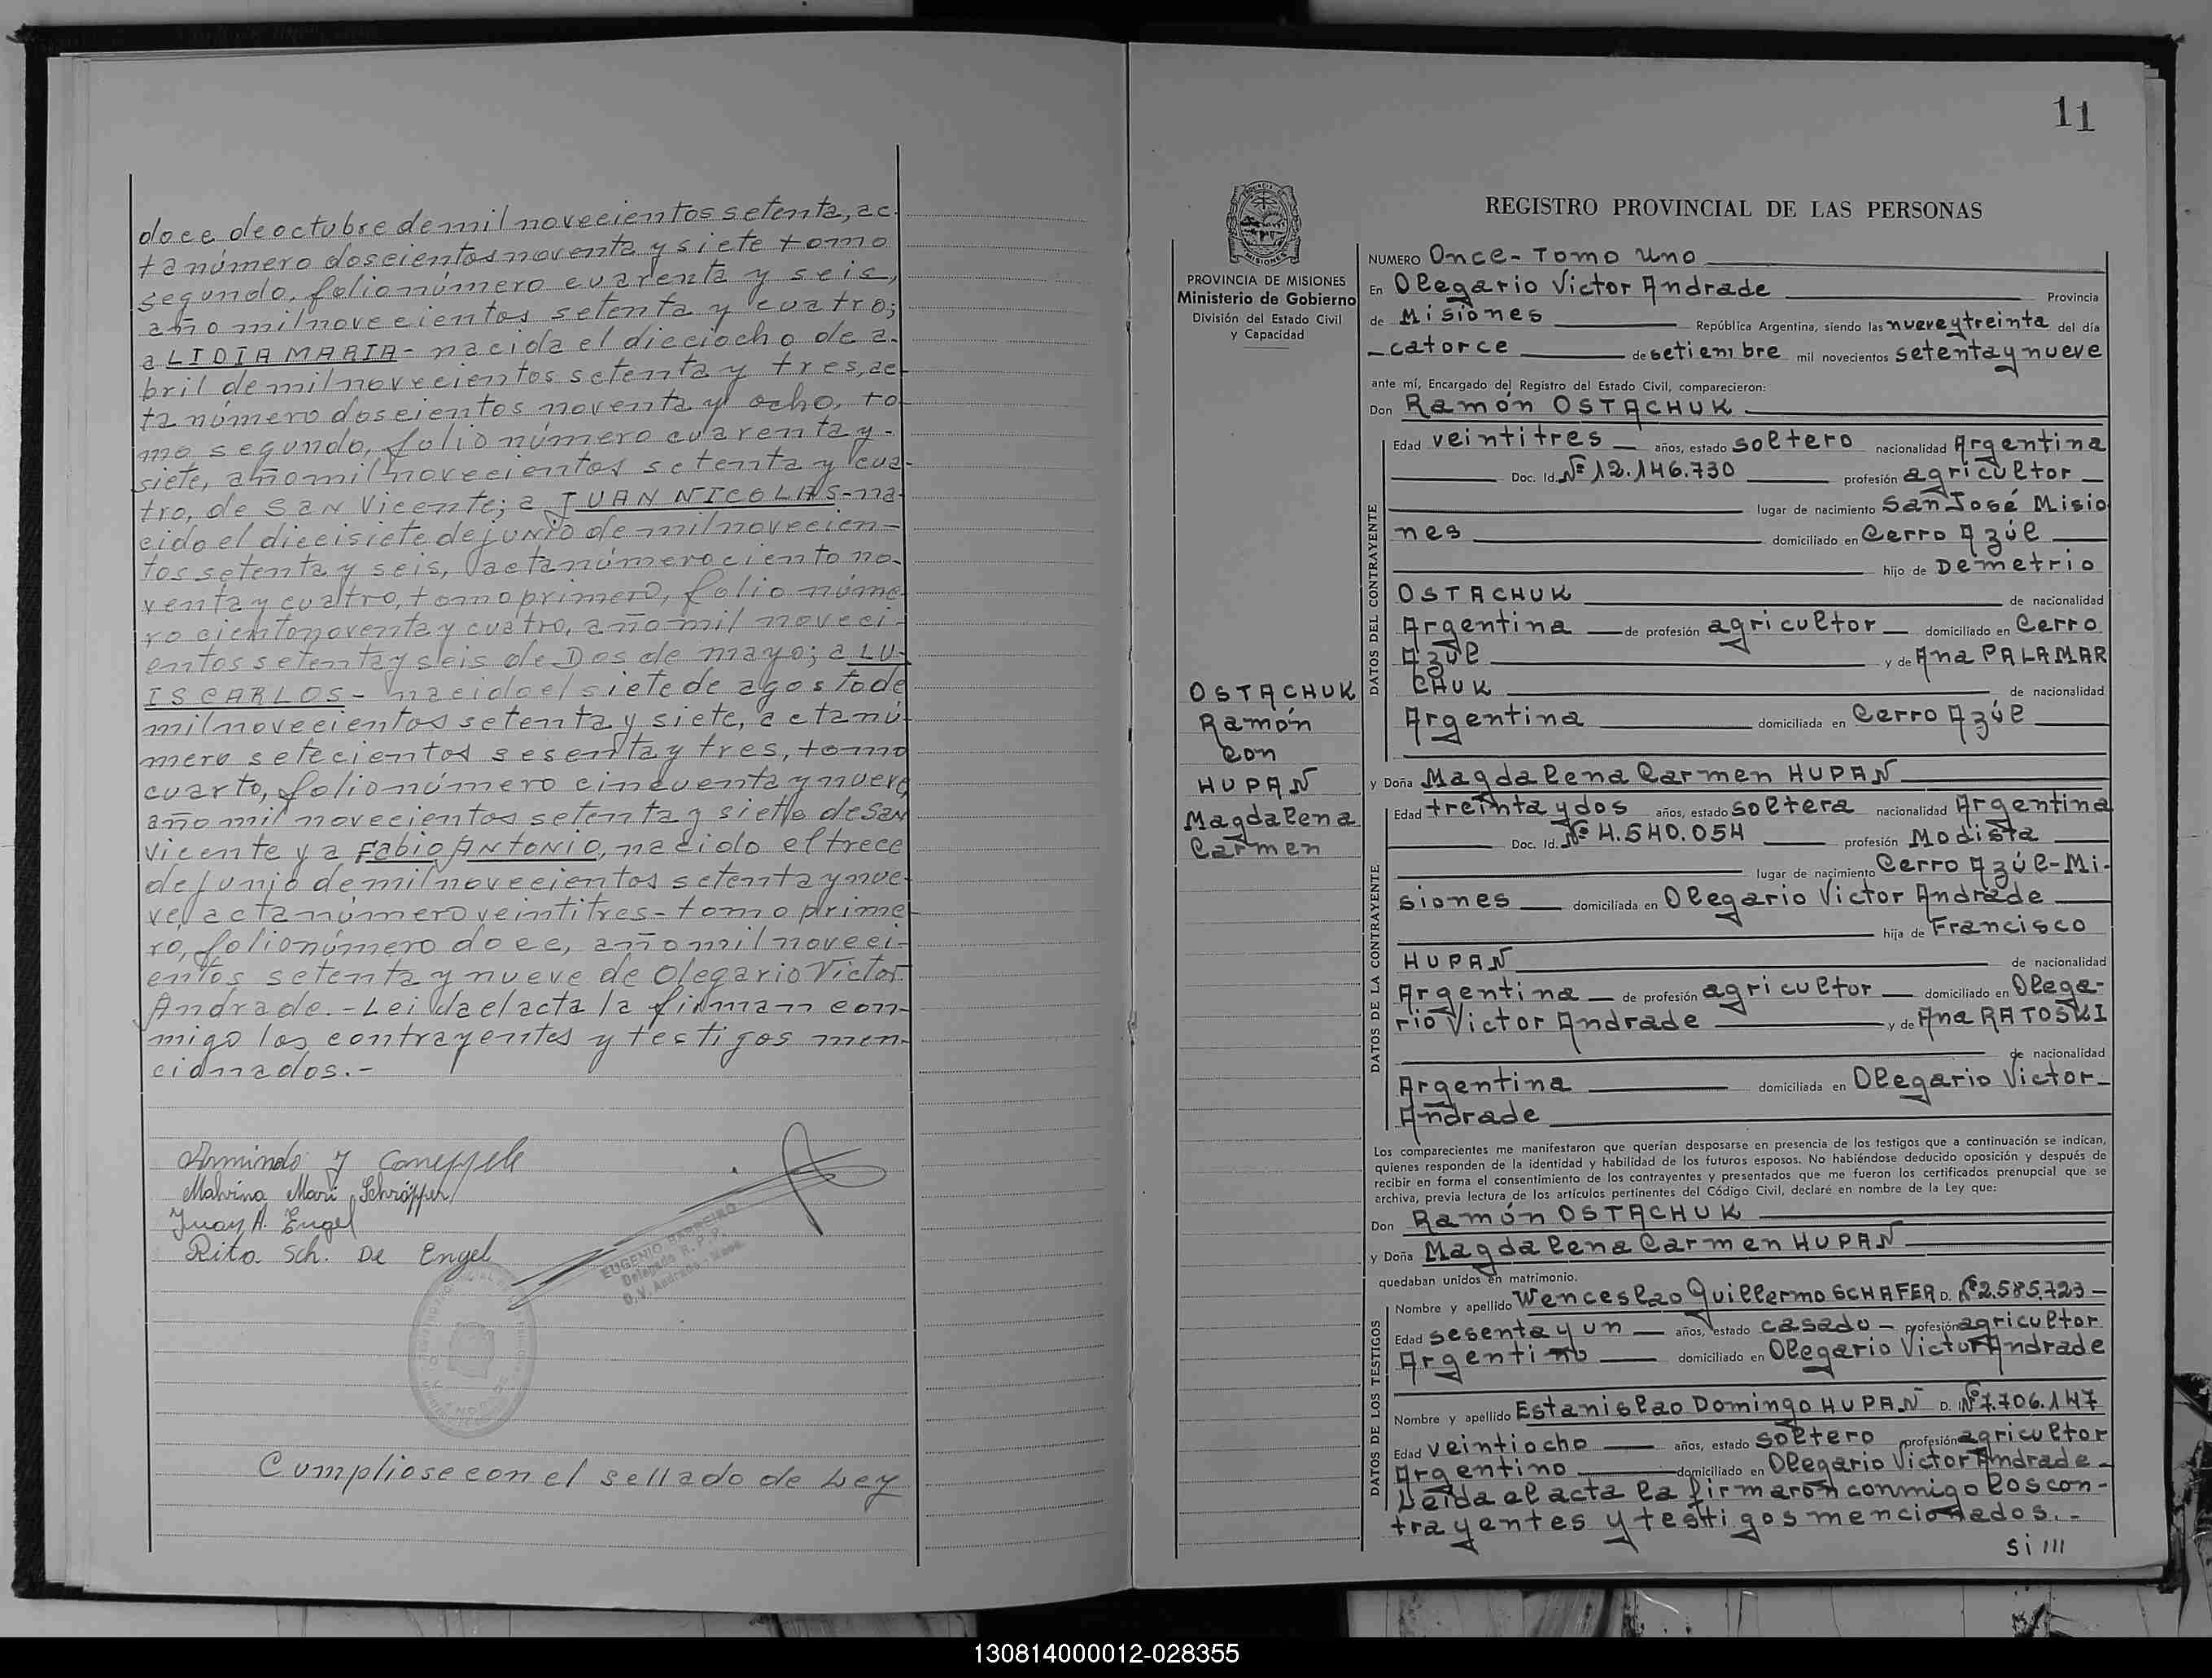 doce de octubre de mil novecientos setenta, ac-
ta número doscientos noventa y siete tomo
segundo, folio número cuarenta y seis,
año mil novecientos setenta y cuatro;
a LIDIA MARIA- nacida el dieciocho de a-
bril de mil novecientos setenta y tres, ac-
ta número doscientos noventa y ocho, to-
mo segundo, folio número cuarenta y-
siete, año mil novecientos setenta y cua-
tro, de San Vicente; a JUAN NICOLAS-na-
cido el diecisiete de junio de mil novecien-
tos setenta y seis, acta número ciento no-
venta y cuatro, tomo primero, folio núme-
ro ciento noventa y cuatro, año mil noveci-
entos setenta y seis de Dos de mayo; a LU-
IS CARLOS- nacido el siete de agosto de
mil novecientos setenta y siete, acta nú-
mero setecientos sesenta y tres, tomo
cuarto, folio número cincuenta y nueve,
año mil novecientos setenta y siete de San
Vicente y a Fabio ANTONIO, nacido el trece
de junio de mil novecientos setenta y nue-
ve, acta número veintitres- tomo prime-
ro, folio número doce, año mil noveci-
entos setenta y nueve de Olegario Victor
Andrade.- Leida el acta la firman con-
migo los contrayentes y testigos men-
cionados.-
Armindo J Coneppele
Malvina Mari Schröpper
Juan A. Engel
Rita Sch. De Engel
EUGENIO BARREIRO
Delegado R. P. P.
O. V. Andrade - Mnes.
Cumpliose con el sellado de Ley
11
PROVINCIA DE MISIONES
Ministerio de Gobierno
División del Estado Civil
y Capacidad
OSTACHUK
Ramón
con
HUPAÑ
Magdalena
Carmen
REGISTRO PROVINCIAL DE LAS PERSONAS
NUMERO Once- Tomo Uno
En Olegario Victor Andrade Provincia
de Misiones República Argentina, siendo las nueve y treinta del día
catorce de setiembre mil novecientos setenta y nueve
ante mí, Encargado del Registro del Estado Civil, comparecieron:
Don Ramón OSTACHUK
DATOS DEL CONTRAYENTE
Edad veintitres años, estado soltero nacionalidad Argentina
Doc. Id. Nº 12.146.730 profesión agricultor
lugar de nacimiento San José Misio
nes domiciliado en Cerro Azúl
hijo de Demetrio
OSTACHUK de nacionalidad
Argentina de profesión agricultor domiciliado en Cerro
Azúl y de Ana PALAMAR
CHUK de nacionalidad
Argentina domiciliada en Cerro Azúl
y Doña Magdalena Carmen HUPAÑ
DATOS DE LA CONTRAYENTE
Edad treinta y dos años, estado soltera nacionalidad Argentina
Doc. Id. Nº 4.540.054 profesión Modista
lugar de nacimiento Cerro Azúl-Mi-
siones domiciliada en Olegario Victor Andrade
hija de Francisco
HUPAÑ de nacionalidad
Argentina de profesión agricultor domiciliado en Olega-
rio Victor Andrade y de Ana RATOSKI
de nacionalidad
Argentina domiciliada en Olegario Victor
Andrade
Los comparecientes me manifestaron que querían desposarse en presencia de los testigos que a continuación se indican,
quienes responden de la identidad y habilidad de los futuros esposos. No habiéndose deducido oposición y después de
recibir en forma el consentimiento de los contrayentes y presentados que me fueron los certificados prenupcial que se
archiva, previa lectura de los artículos pertinentes del Código Civil, declaré en nombre de la Ley que:
Don Ramón OSTACHUK
y Doña Magdalena Carmen HUPAÑ
quedaban unidos en matrimonio.
DATOS DE LOS TESTIGOS
Nombre y apellido Wenceslao Guillermo SCHAFER D. Nº 2.585.723-
Edad sesenta y un años, estado casado profesión agricultor
Argentino domiciliado en Olegario Victor Andrade
Nombre y apellido Estanislao Domingo HUPAÑ D. Nº 7.706.147
Edad veintiocho años, estado soltero profesión agricultor
Argentino domiciliado en Olegario Victor Andrade
Leida el acta la firmaron conmigo los con-
trayentes y testigos mencionados.-
Si ///
130814000012-028355